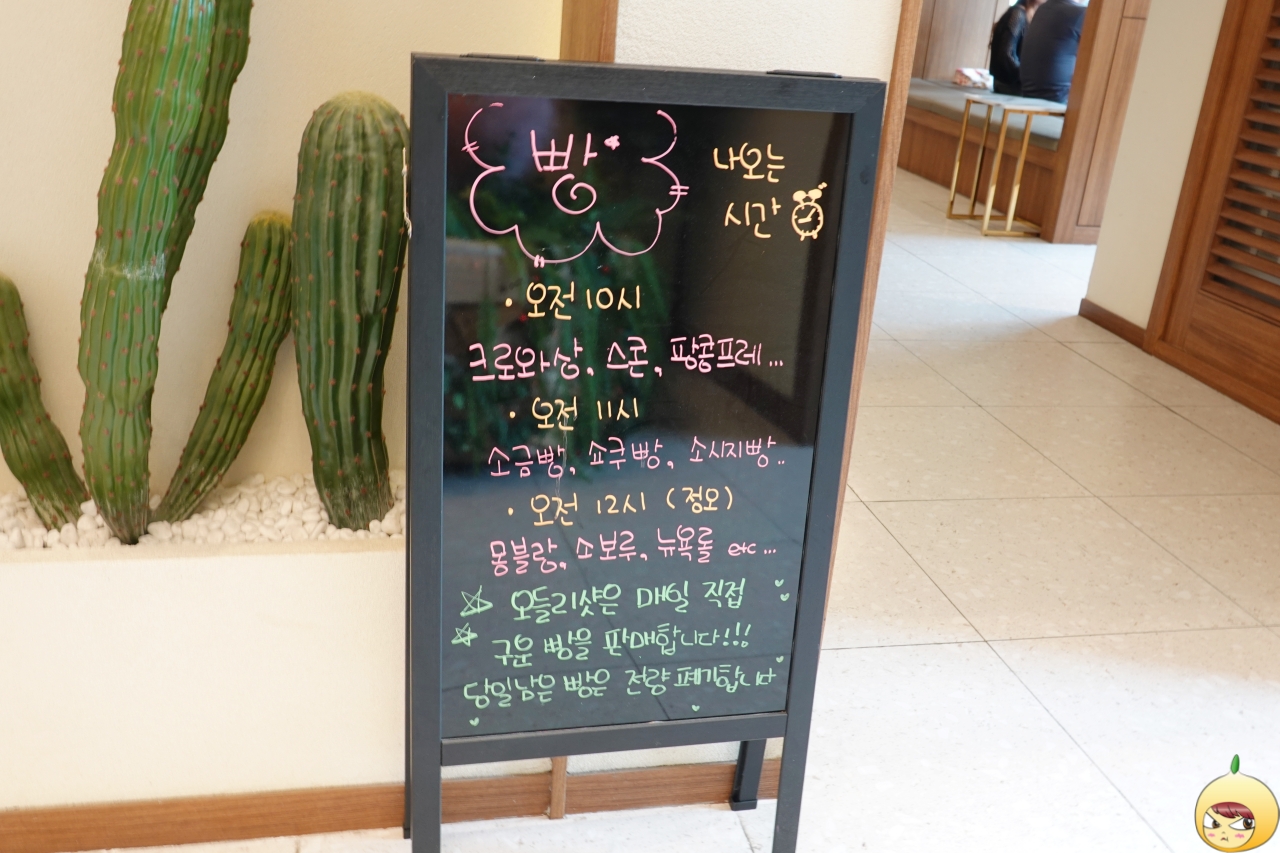 빵 나오는
시간
· 오전 10시
크로와상, 스콘, 팡콩프레...
· 오전 11시
소금빵, 쇼쿠빵, 소시지빵..
· 오전 12시 (정오)
몽블랑, 소보루, 뉴욕롤 etc...
☆ 오들리샷은 매일 직접
☆ 구운 빵을 판매합니다!!!
당일남은 빵은 전량 폐기합니다